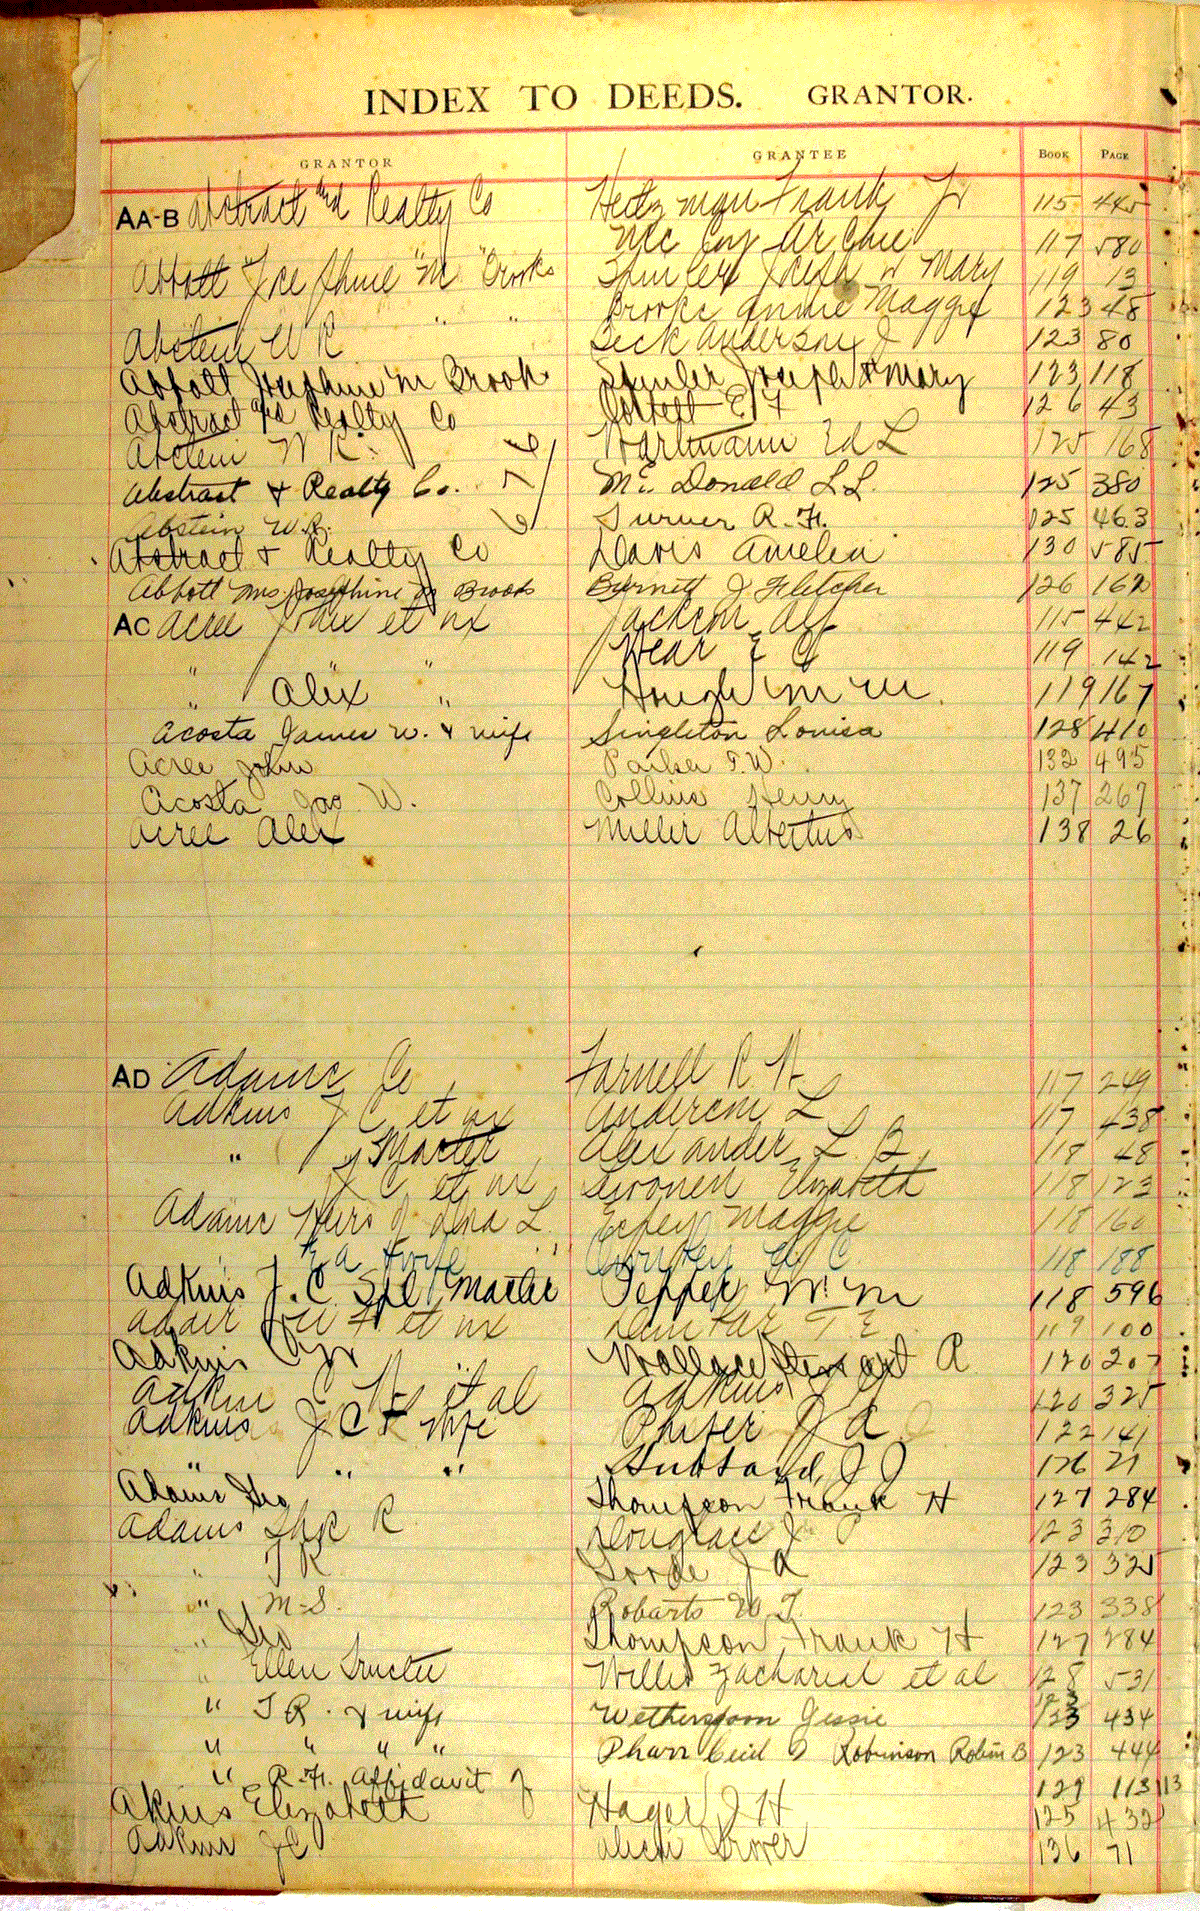 INDEX TO DEEDS. GRANTOR.
GRANTOR GRANTEE BOOK PAGE
AA-B Abstract and Realty Co Heitzman Frank Jr 115 445
Mc Coy Archie 117 580
Abbott Josephine M Brooks Shuler Joseph & Mary 119 13
" " Brooks Annie Maggie 123 48
Abstein W R Beck Anderson J 123 80
Abbott Josephine M Brook Shuler Joseph & Mary 123 118
Abstract and Realty Co Cottell E F 126 43
Abstein W R. Hartmann Ed L 125 168
Abstract & Realty Co. 676 Mc. Donald L L. 125 380
Abstein W. R. Turner R. H. 125 463
Abstract & Realty Co Davis Amelia 130 585
Abbott Mrs Josephine M Brooks Burnett J Fletcher 126 162
AC Acree et ux Jackson Alf 115 442
Wear E G 119 142
" Alex " Hough Wm M. 119 167
Acosta James W. & wife Singleton Louisa 128 410
Acree John Parker T. W. 132 495
Acosta Jas W. Collins Henry 137 267
Acree Alex Miller Albertus 138 26
AD Adams Co Farnell R H 117 249
Adkins J C et ux Anderson L 117 438
" J C Master Alexander L. B. 118 48
J C et ux Elizabeth 118 123
Adams Heirs of L. Maggie 118 160
118 188
Adkins J. C. Spel Master Pepper W. M 118 596
Adair et ux T E 119 100
Adkins Wallace Stewart R 120 207
Adkins et al Adkins 120 325
Adkins J C & wife Phifer J A 122 141
" " " Hubbard, J J 126 21
Adams Geo Thompson Frank H 127 284
Adams R Douglass J 123 310
" T R Goode J A 123 325
" M. S. Robarts W. T. 123 338
" Geo Thompson Frank H 127 284
" Ellen Trustee Willis Zachariah et al 128 531
" T R. & wife Wetherspoon Jessie 123 434
" " " " Pharr Ceil & Robinson Robin B 123 444
" R. H. Affidavit of 129 113 113
Akins Elizabeth Hager J H 125 432
Adkins J C Grover 136 71